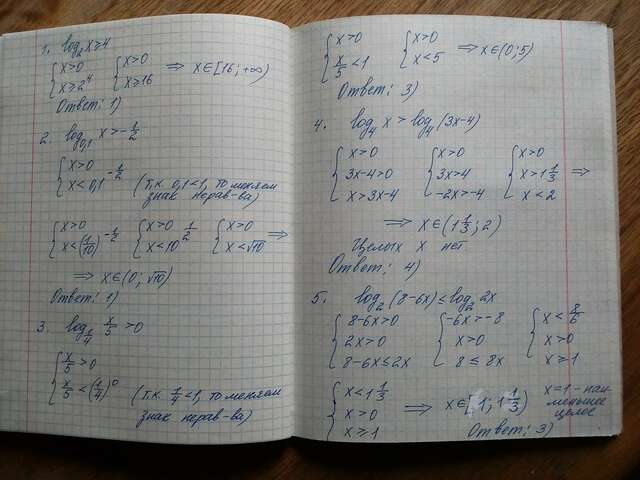 1. log₂x ≥ 4
{x>0 {x>0 ⇒ x∈[16; +∞)
x≥2⁴ x≥16
Ответ: 1)
2. log₀,₁ x > -1/2
{x>0
x<0,1^(-1/2) (т.к. 0,1<1, то меняем
знак нерав-ва)
{x>0 {x>0 {x>0 ⇒
x<(1/10)^(-1/2) x<10^(1/2) x<√10
⇒ x∈(0; √10)
Ответ: 1)
3. log_(1/4) x/5 > 0
{x/5 > 0
x/5 < (1/4)⁰ (т.к. 1/4<1, то меняем
знак нерав-ва)
{x>0 {x>0 ⇒ x∈(0; 5)
x/5<1 x<5
Ответ: 3)
4. log₄ x > log₄ (3x-4)
{x>0 {x>0 {x>0 ⇒
3x-4>0 3x>4 x>1 1/3
x>3x-4 -2x>-4 x<2
⇒ x∈(1 1/3; 2)
Целых x нет
Ответ: 4)
5. log₂(8-6x) ≤ log₂ 2x
{8-6x>0 {-6x>-8 {x<8/6
2x>0 x>0 x>0
8-6x≤2x 8≤8x x≥1
{x<1 1/3
x>0 ⇒ x∈[1; 1 1/3) x=1 - наи-
меньшее
целое
x≥1
Ответ: 3)